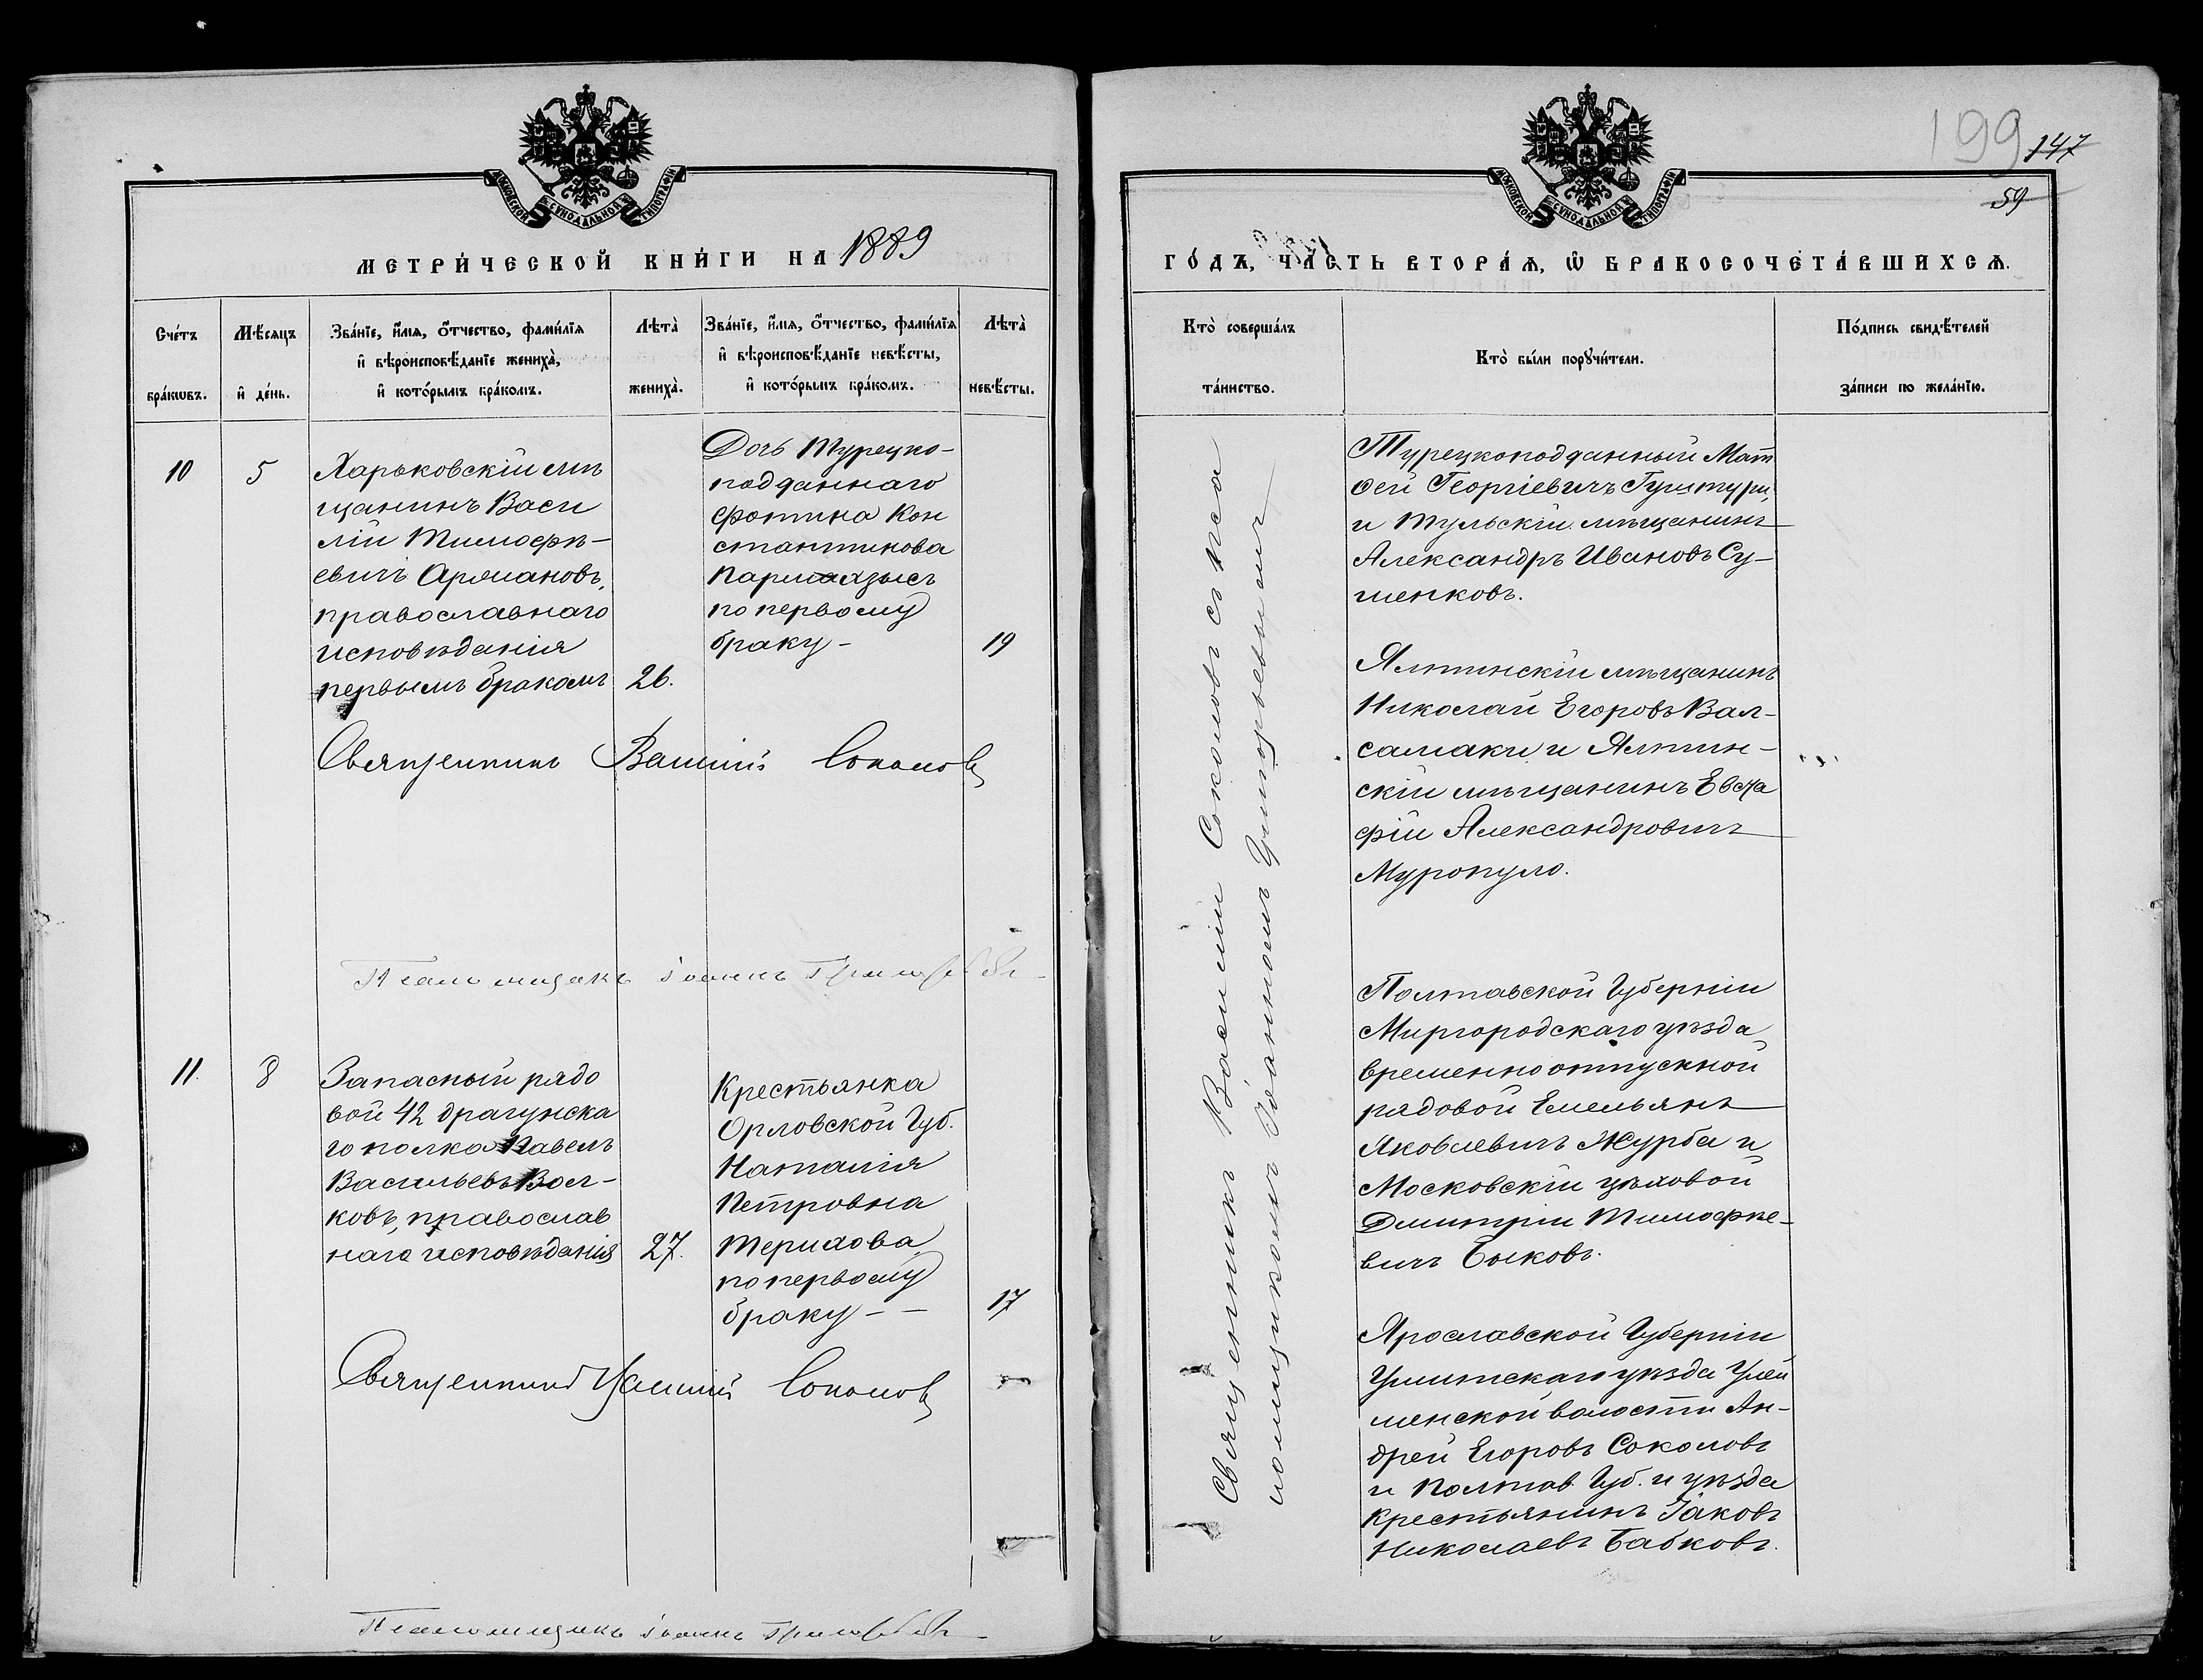 МОСКОВСКОЙ СѴНОДАЛЬНОЙ ТИПОГРАФІИ
МЕТРИ́ЧЕСКОЙ КНИ́ГИ НА 1889
Сче́тъ бра́кѡвъ.
Мѣ́сяцъ и҆ де́нь.
Зва́нїе, и҆́мѧ, ѻ҆́тчество, фами́лїѧ
и҆ вѣроисповѣ́данїе жениха̀,
и҆ кото́рымъ бра́комъ.
Лѣта̀ жениха̀.
Зва́нїе, и҆́мѧ, ѻ҆́тчество, фами́лїѧ
и҆ вѣроисповѣ́данїе невѣ́сты,
и҆ кото́рымъ бра́комъ.
Лѣта̀ невѣ́сты.
10
5
Харьковскій мѣ
щанинъ Васи
лій Тимоѳѣ-
евичъ Армановъ,
православнаго
исповѣданія
первымъ бракомъ
26.
Дочь Турецко-
подданнаго
Фотина Кон
стантинова
по первому
браку-
19
Священникъ Василій Соколовъ
Псаломщикъ Іоаннъ
11.
8
Запасный рядо
вой 42 драгунска
го полка Павелъ
Васильевъ Вол-
ковъ, православ
наго исповѣданія
27.
Крестьянка
Орловской Губ.
Наталія
Петровна
Терихова
по первому
браку - -
17
Священникъ Василій Соколовъ
Псаломщикъ Іоаннъ
МОСКОВСКОЙ СѴНОДАЛЬНОЙ ТИПОГРАФІИ
199 147
59
ГО́ДЪ, ЧА́СТЬ ВТОРА́Ѧ, Ѡ҆ БРАКОСОЧЕТА́ВШИХСѦ.
Кто̀ соверша́лъ
та́инство.
Кто̀ бы́ли порꙋчи́тели.
По́дпись свидѣ́телей
за́писи по жела́нїю.
Священникъ Василій Соколовъ съ пса
ломщикомъ Іоанномъ
Турецкоподданный Мат
ѳей Георгіевичъ Гуштури,
и Тульскій мѣщанинъ
Александръ Ивановъ Су-
шенковъ.
Ялтинскій мѣщанинъ
Николай Егоровъ Вал-
самаки и Ялтин-
скій мѣщанинъ Евста
фій Александровичъ
Муропуло.
Полтавской Губерніи
Миргородскаго уѣзда
временно отпускной
рядовой Емельянъ
Яковлевичъ Журба и
Московскій цѣховой
Дмитрій Тимофѣе-
вичъ Быковъ.
Ярославской Губерніи
уѣзда
менской волости Ан-
дрей Егоровъ Соколовъ
и Полтав. Губ. и уѣзда
крестьянинъ Іаковъ
Николаевъ Бабковъ.